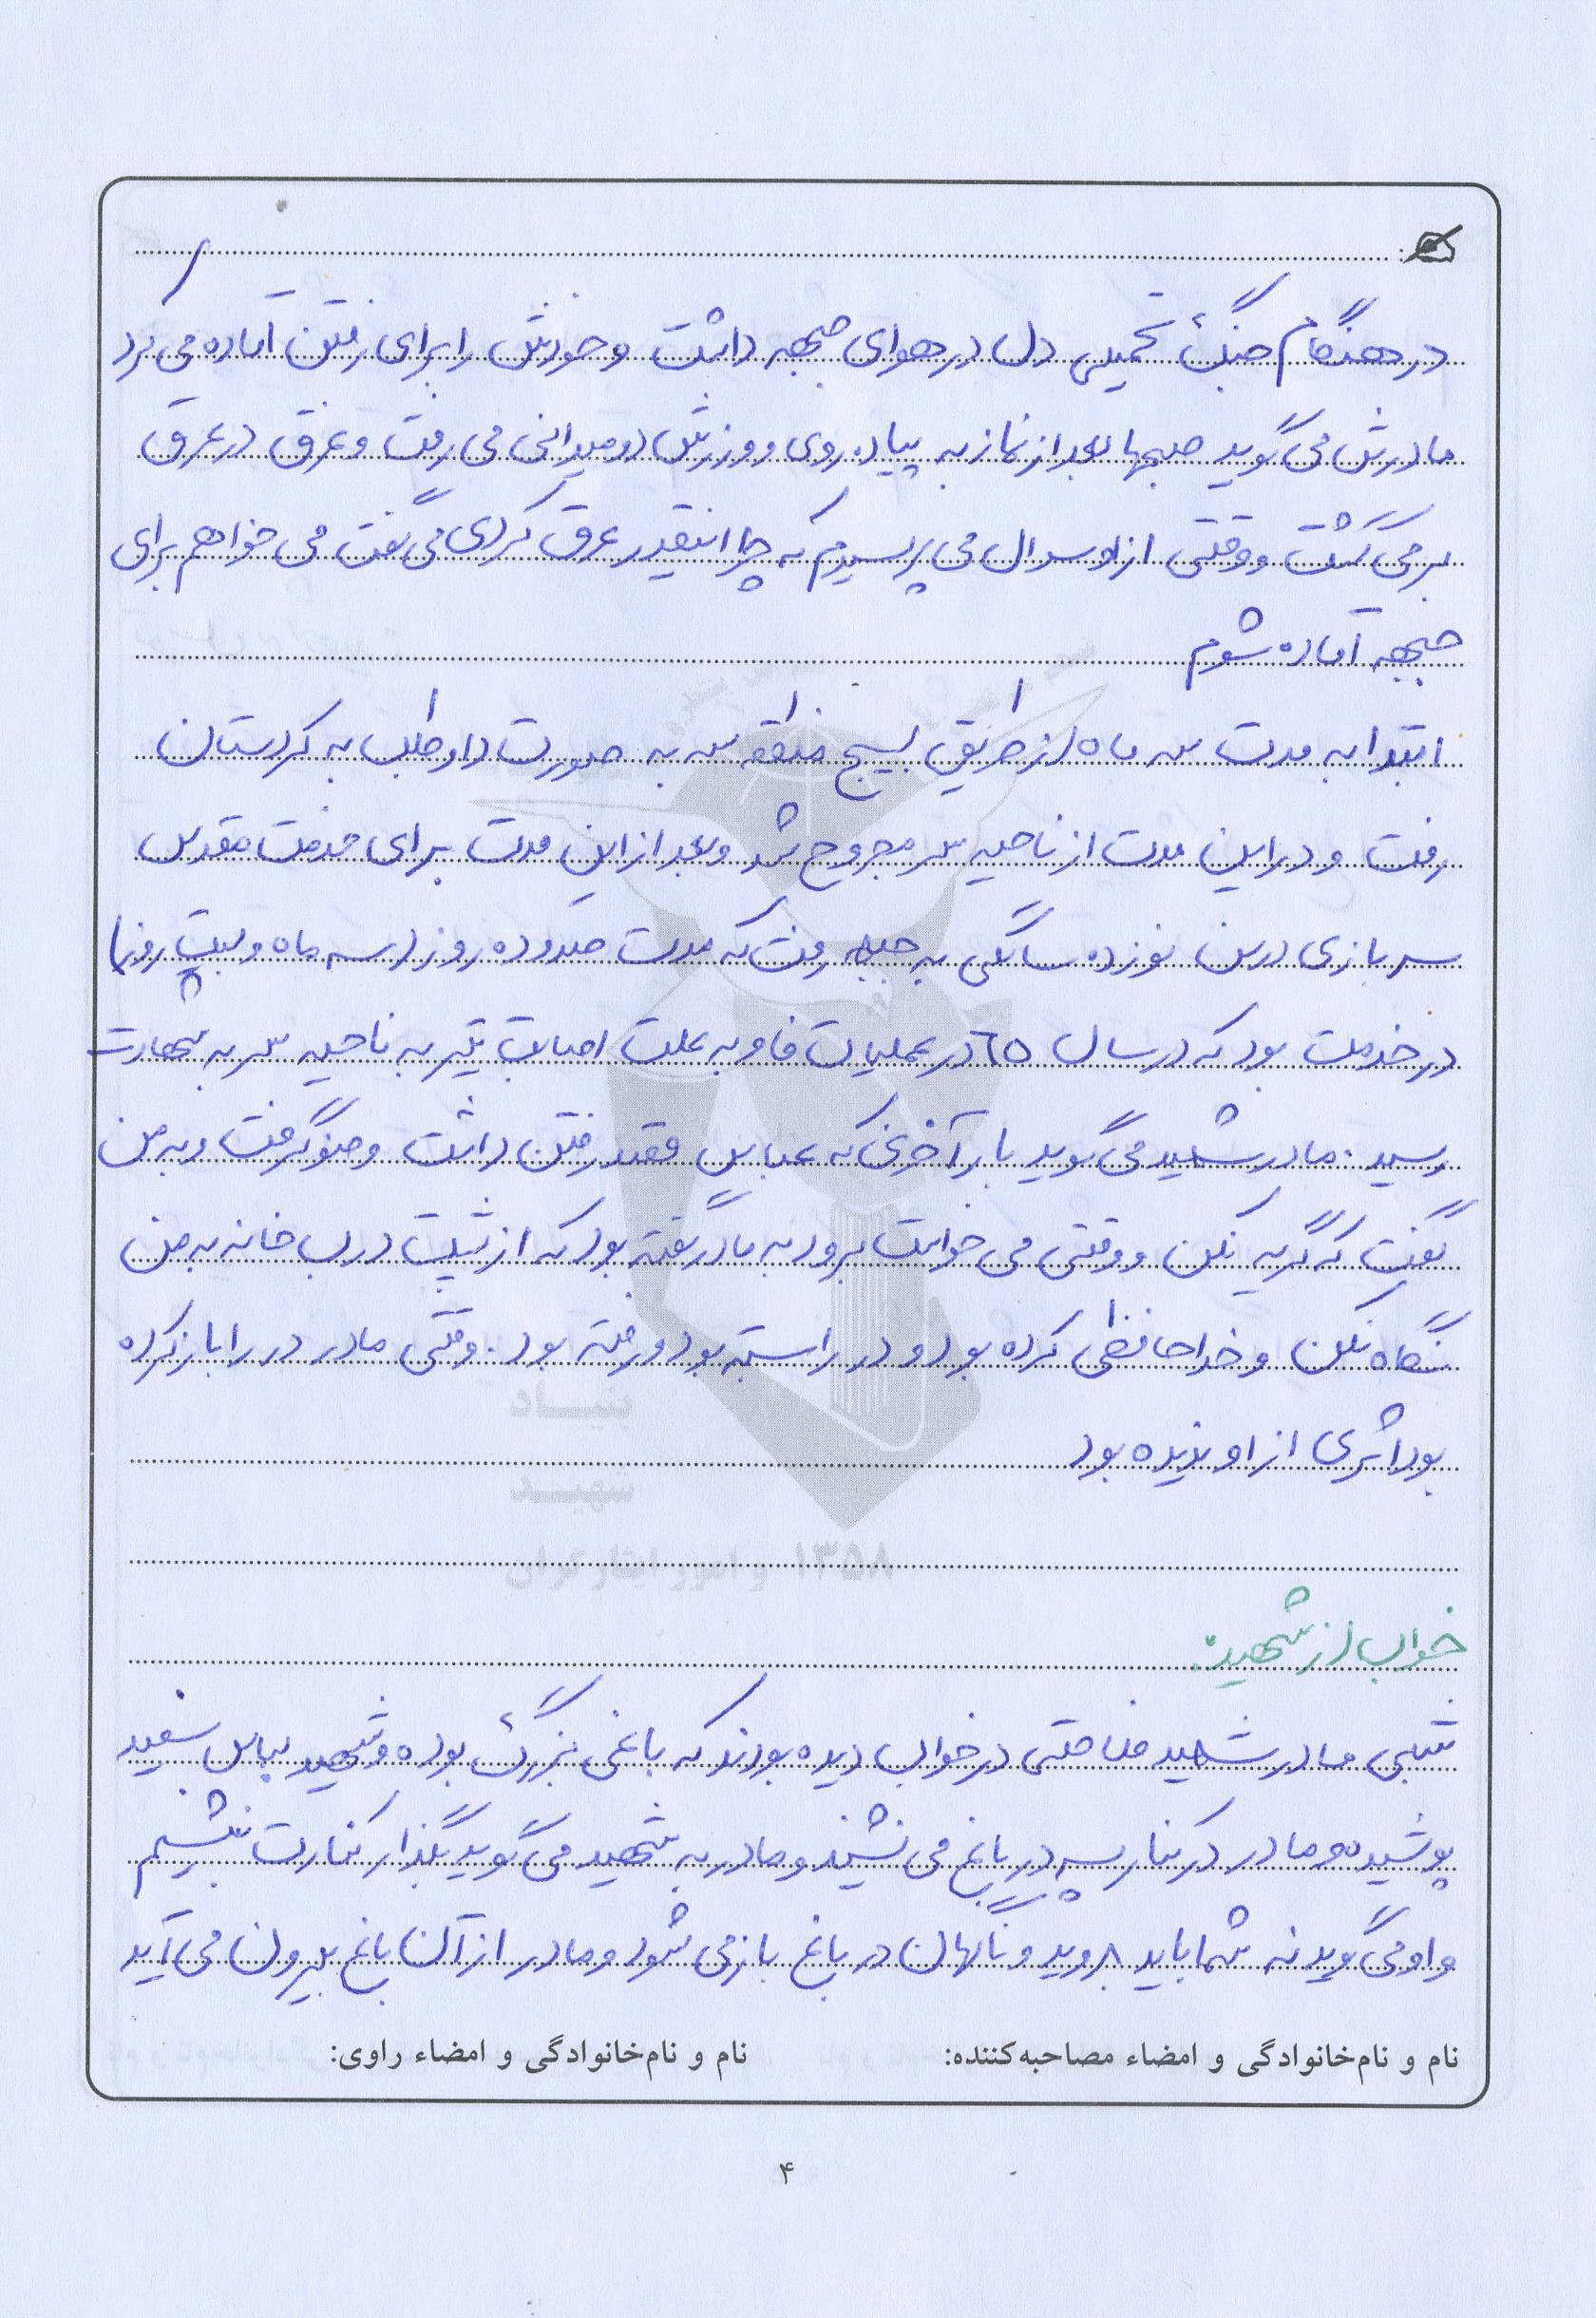 در هنگام جنگ تحمیلی دل در هوای جبهه داشت و خودش را برای رفتن آماده می کرد
مادرش می گوید صبحها بعد از نماز به پیاده روی و ورزش دومیدانی می رفت و عرق در عرق
بر می گشت و وقتی از او سوال می پرسیدم که چرا انقدر عرق کردی می گفت می خواهم برای
جبهه آماده شوم
ابتدا به مدت سه ماه از طریق بسیج منطقه سه به صورت داوطلب به کردستان
رفت و در این مدت از ناحیه سر مجروح شد و بعد از این مدت برای خدمت مقدس
سربازی در سن نوزده سالگی به جبهه رفت که مدت صدو ده روز (سه ماه و بیست روز)
در خدمت بود که در سال ٦٥ در عملیات فاو به علت اصابت تیر به ناحیه سر به شهادت
رسید. مادر شهید می گوید بار آخری که عباس قصد رفتن داشت وضو گرفت و به من
گفت که گریه نکن و وقتی می خواست برود به مادر گفته بود که از پشت درب خانه به من
نگاه نکن و خداحافظی کرده بود و در را بسته بود و رفته بود. وقتی مادر در را باز کرده
بود اثری از او ندیده بود
بنیاد
شهید
و امور ایثارگران ۱۳۵۸
خواب از شهید:
شبی مادر شهید در خواب دیده بودند که باغی بزرگ بوده و شهید لباس سفید
پوشیده و مادر در کنار پسر در باغ می نشیند و مادر به شهید می گوید بگذار کنارت بنشینم
و او می گوید نه شما باید بروید و ناگهان در باغ باز می شود و مادر از آن باغ بیرون می آید
نام و نام‌خانوادگی و امضاء مصاحبه‌کننده: نام و نام‌خانوادگی و امضاء راوی:
۴